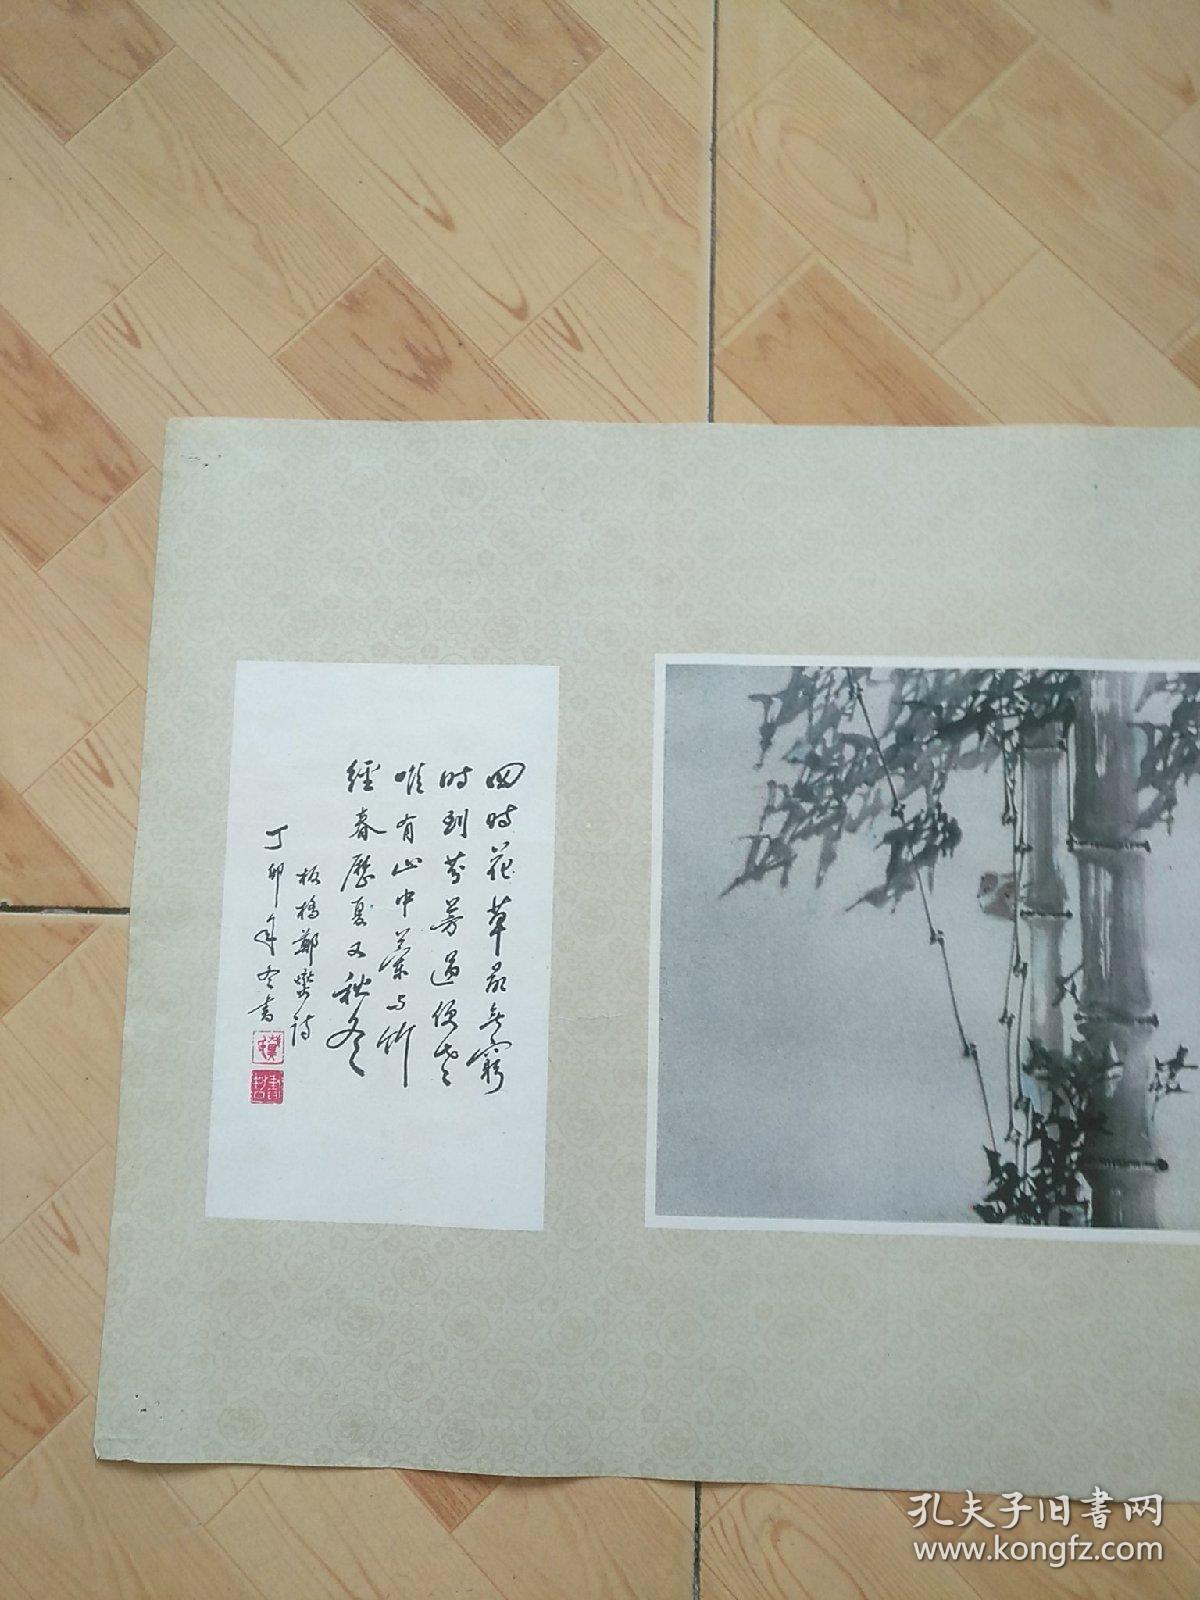 四时花草最无穷
时到芬芳过便空
唯有山中兰与竹
經春歷夏又秋冬
板橋鄭燮詩
丁卯年冬書
孔夫子旧书网
www.kongfz.com